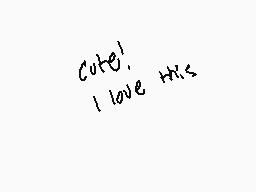 cute!
I love this